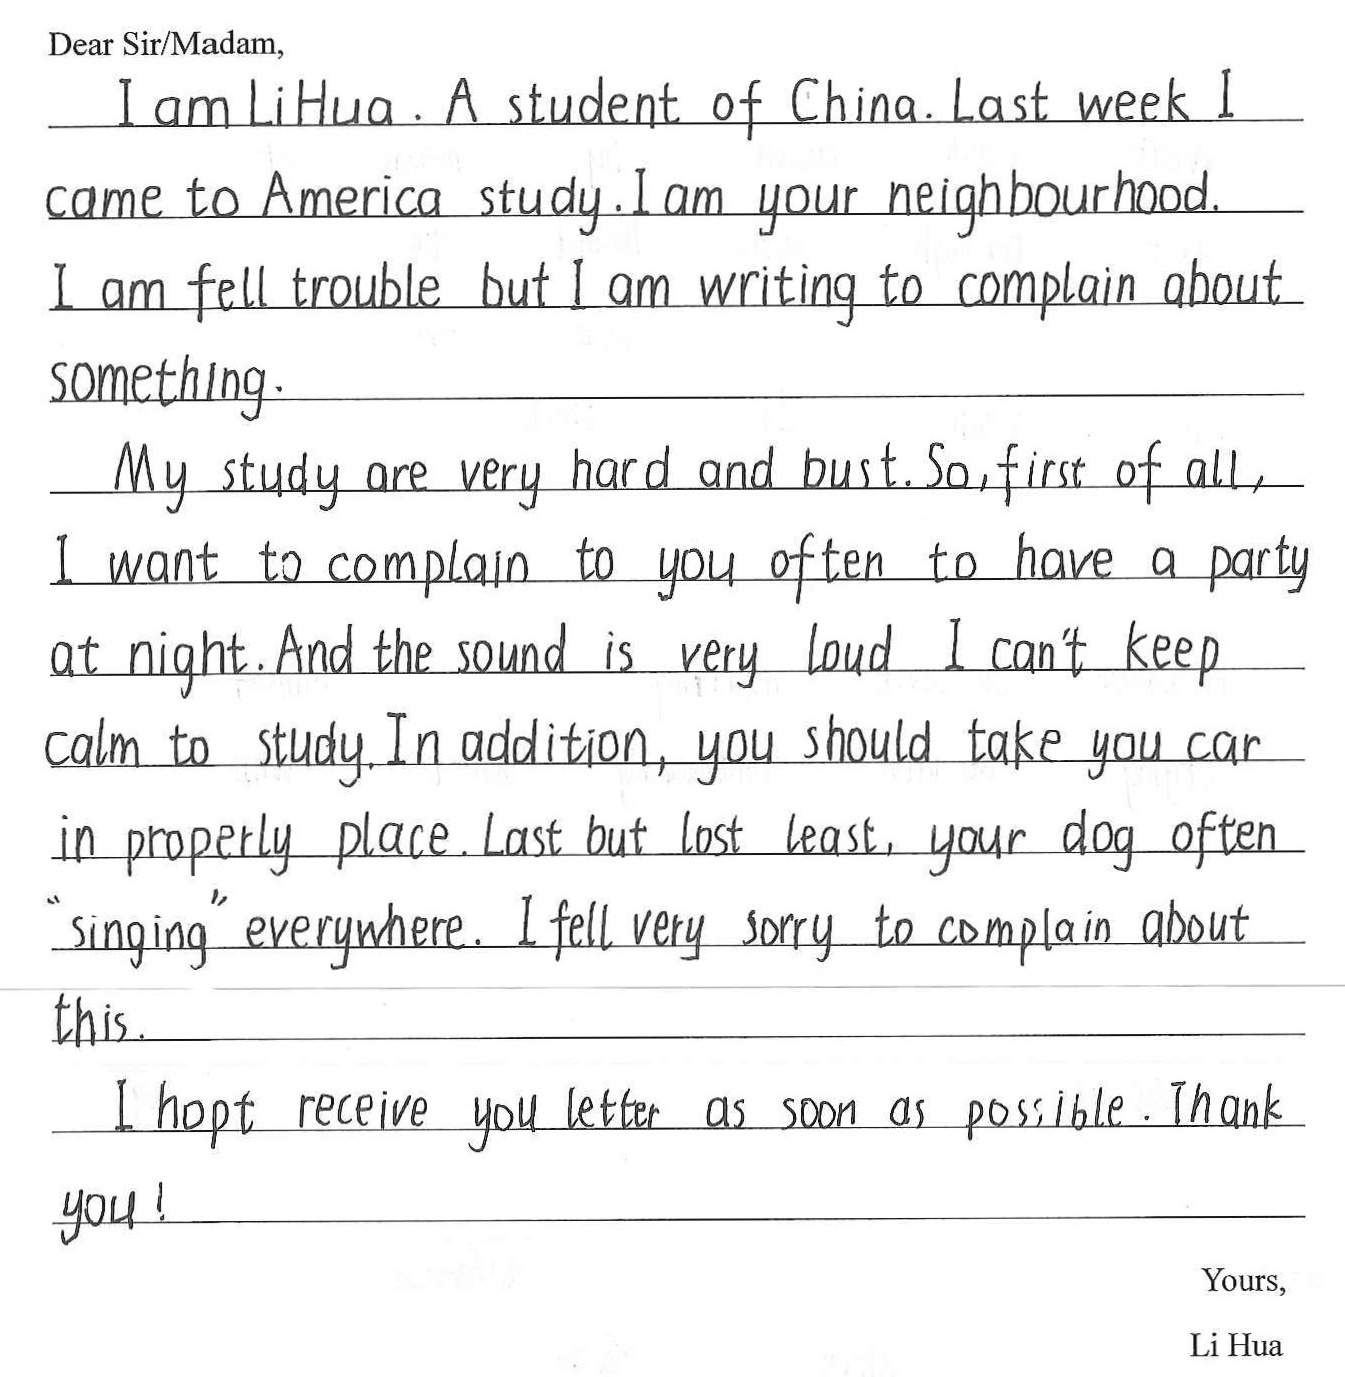 Dear Sir/Madam,
I am Li Hua. A student of China. Last week I
came to America study. I am your neighbourhood.
I am fell trouble but I am writing to complain about
something.
My study are very hard and bust. So, first of all,
I want to complain to you often to have a party
at night. And the sound is very loud I can't keep
calm to study. In addition, you should take you car
in properly place. Last but lost least, your dog often
"singing" everywhere. I fell very sorry to complain about
this.
I hopt receive you letter as soon as possible. Thank
you!
Yours,
Li Hua